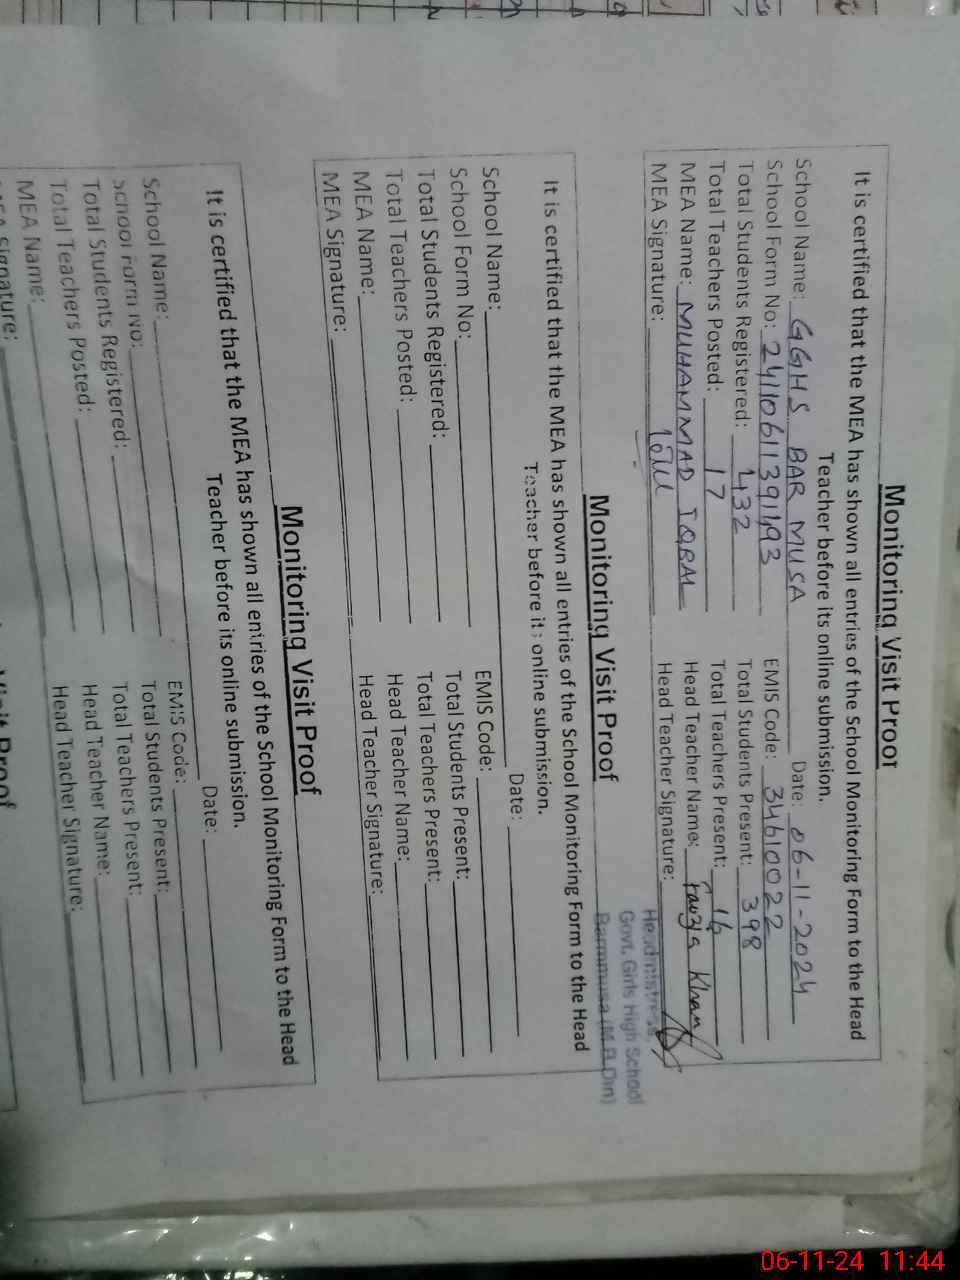 Monitoring Visit Proof
It is certified that the MEA has shown all entries of the School Monitoring Form to the Head
Teacher before its online submission.
School Name: GGHS BAR MUSA Date: 06-11-2024
School Form No: 2411061139193 EMIS Code: 34610022
Total Students Registered: 432 Total Students Present: 398
Total Teachers Posted: 17 Total Teachers Present: 16
MEA Name: MUHAMMAD IQBAL Head Teacher Name: Fauzia Khan
MEA Signature: Head Teacher Signature:
Headmistress,
Govt. Girls High School
Barmmusa (M.B.Din)
Monitoring Visit Proof
It is certified that the MEA has shown all entries of the School Monitoring Form to the Head
Teacher before its online submission.
School Name: Date:
School Form No: EMIS Code:
Total Students Registered: Total Students Present:
Total Teachers Posted: Total Teachers Present:
MEA Name: Head Teacher Name:
MEA Signature: Head Teacher Signature:
Monitoring Visit Proof
It is certified that the MEA has shown all entries of the School Monitoring Form to the Head
Teacher before its online submission.
School Name: Date:
School Form No: EMIS Code:
Total Students Registered: Total Students Present:
Total Teachers Posted: Total Teachers Present:
MEA Name: Head Teacher Name:
MEA Signature: Head Teacher Signature:
Visit Proof
06-11-24 11:44